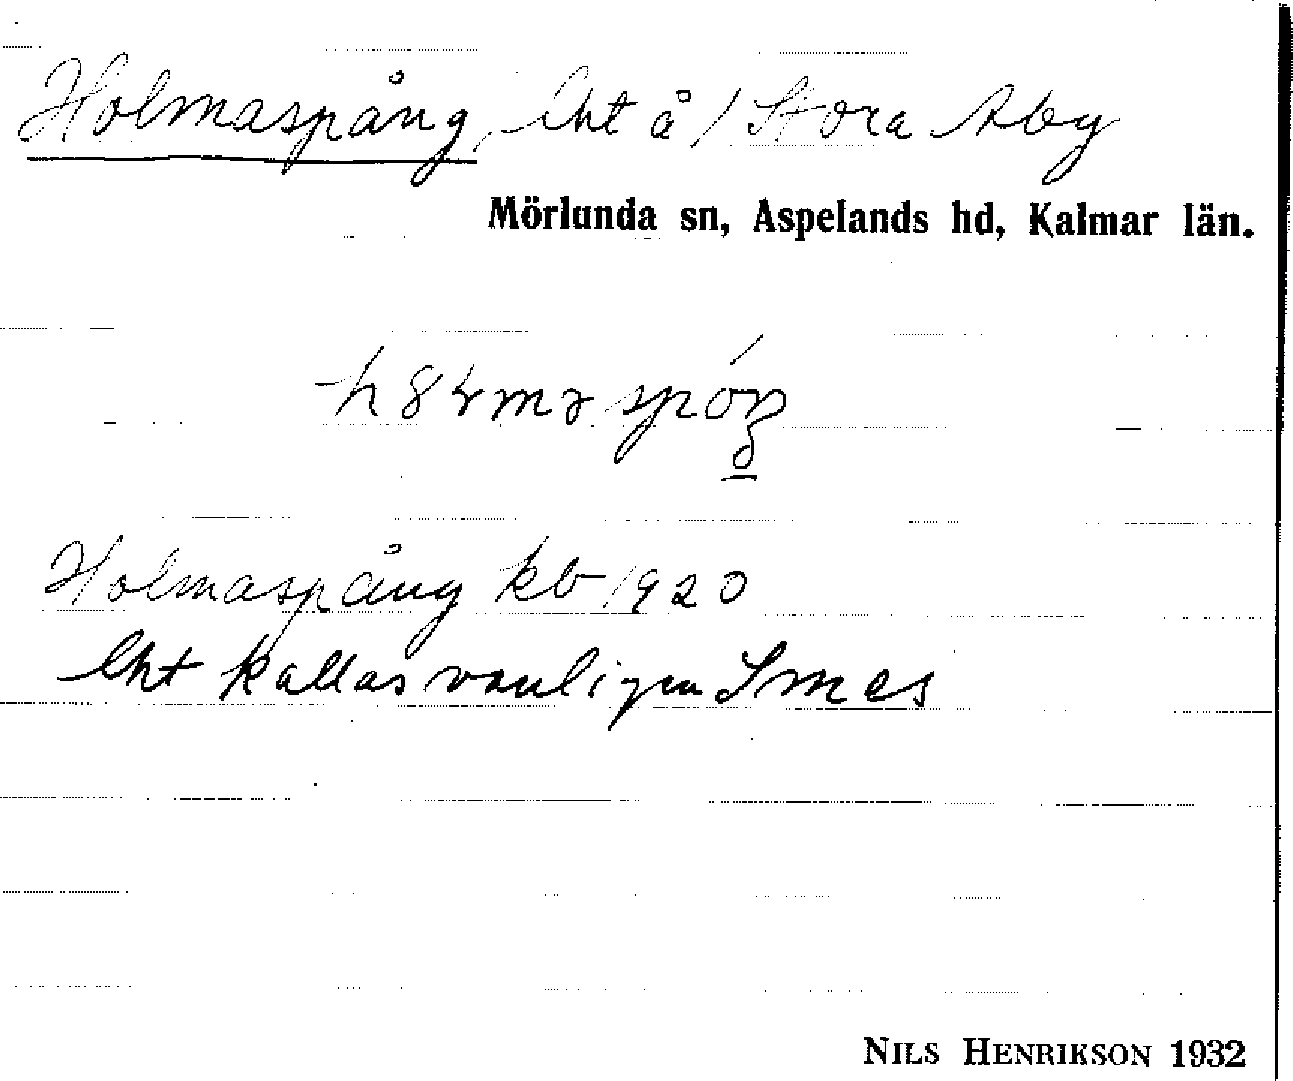 Holmaspång, lht å 1 Stora Aby
Mörlunda sn, Aspelands hd, Kalmar län.
Holmaspång kb 1920
lht kallas vanligen Smes
NILS HENRIKSON 1932